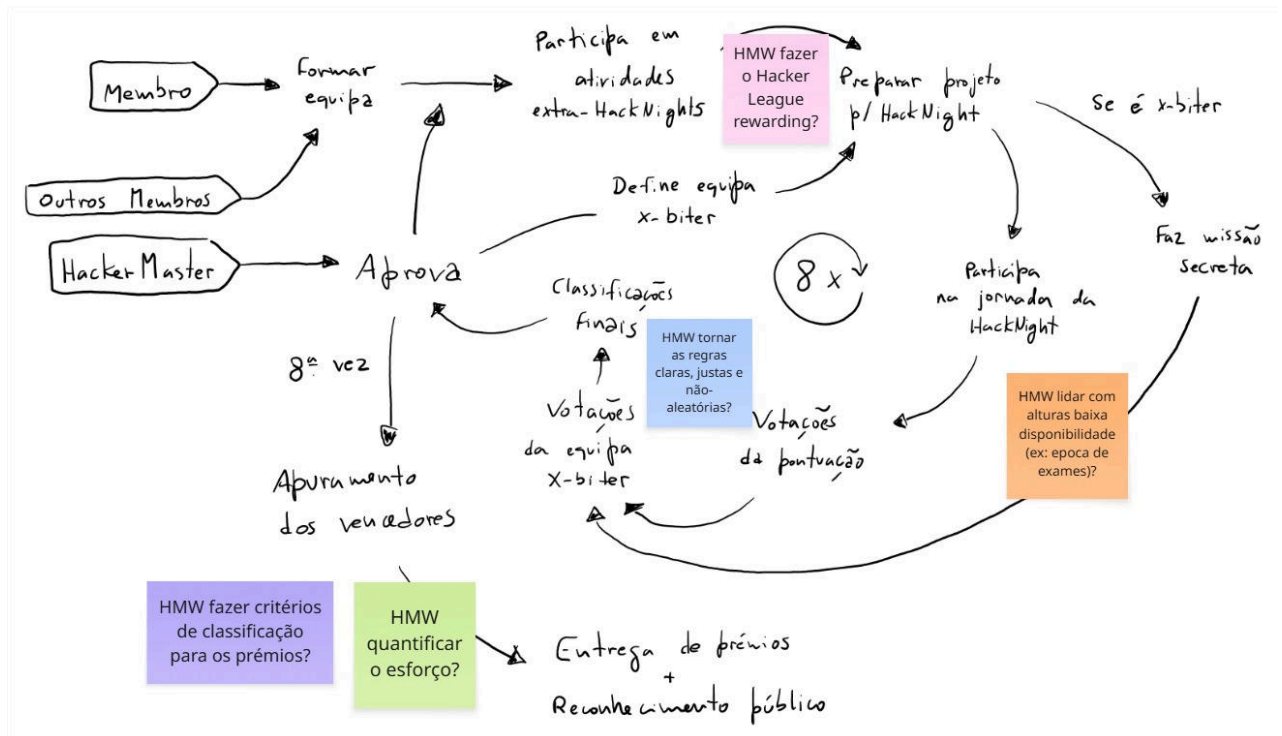 Membro
Outros Membros
HackerMaster
Formar
equipa
Aprova
Participa em
atividades
extra-HackNights
HMW fazer
o Hacker
League
rewarding?
Preparar projeto
p/ HackNight
Se é x-biter
Define equipa
x-biter
Faz missão
secreta
8 x
Participa
na jornada da
HackNight
Classificações
finais
HMW tornar
as regras
claras, justas e
não-
aleatórias?
8ª vez
Votações
da equipa
X-biter
Votações
da pontuação
HMW lidar com
alturas baixa
disponibilidade
(ex: epoca de
exames)?
Apuramento
dos vencedores
HMW fazer critérios
de classificação
para os prémios?
HMW
quantificar
o esforço?
Entrega de prémios
+
Reconhecimento público